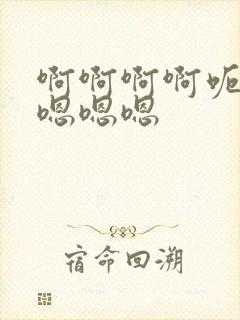 啊啊啊啊呃
嗯嗯嗯
宿命回溯